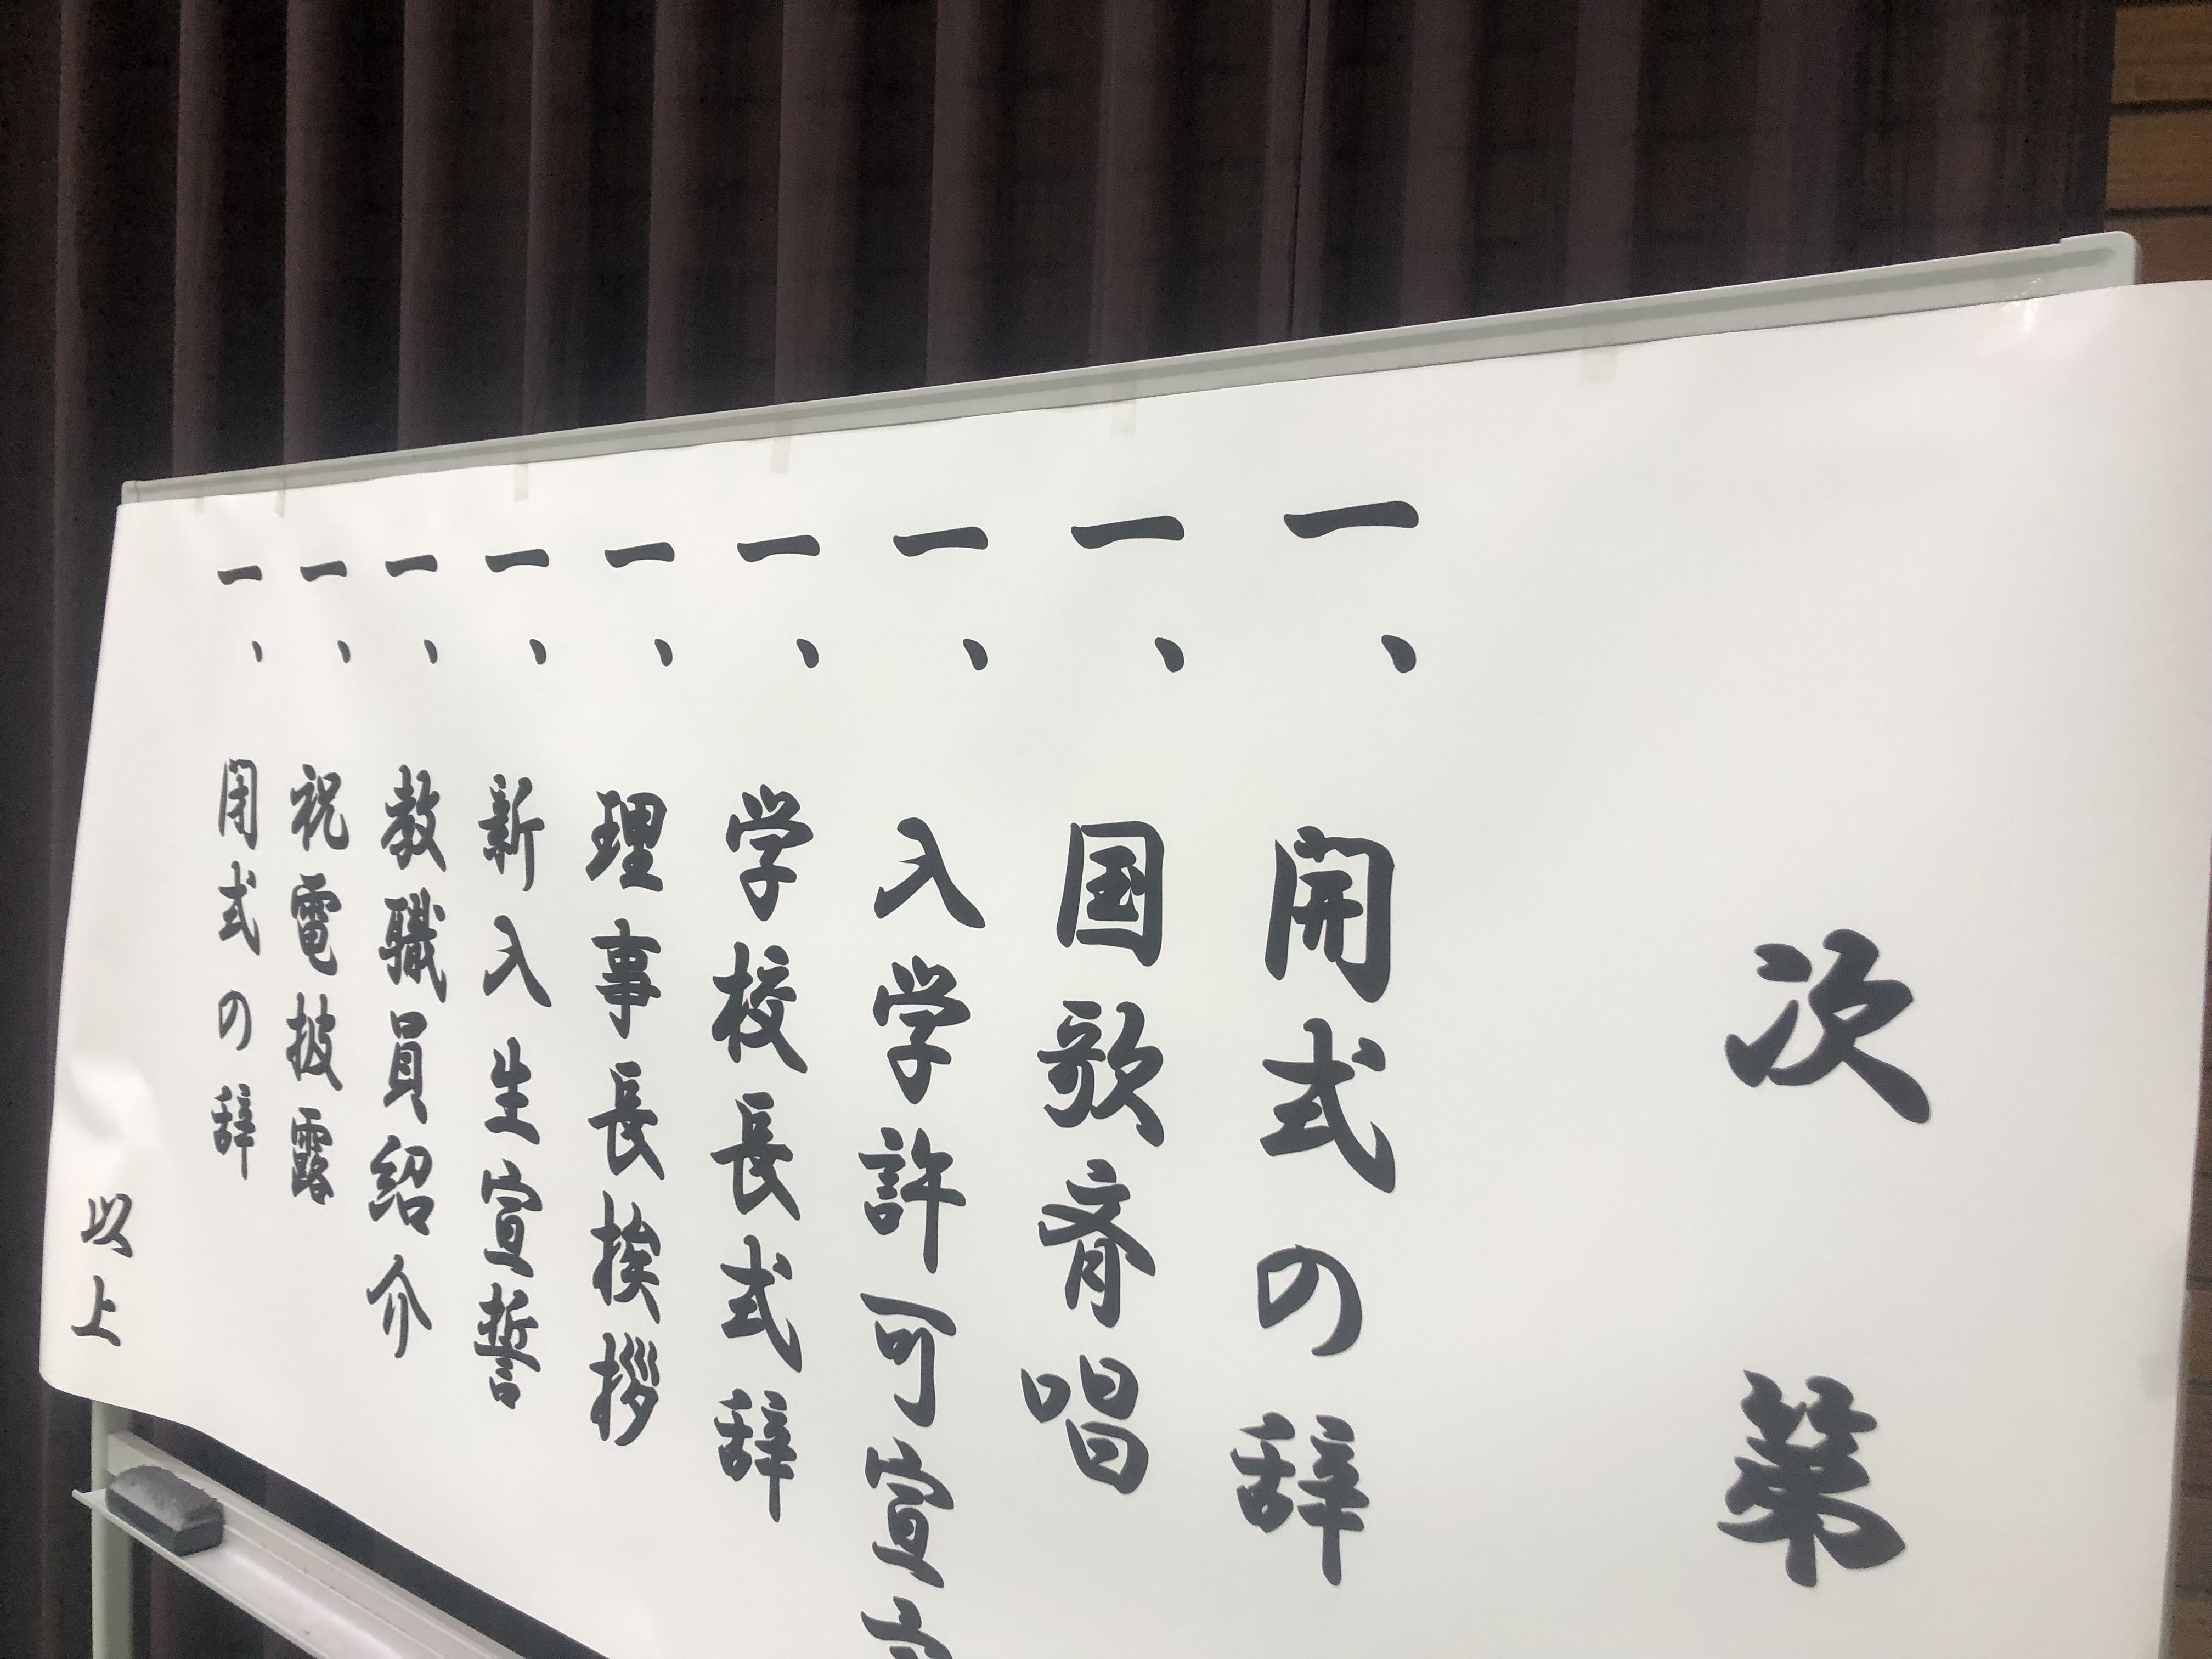 次第
一、開式の辞
一、国歌斉唱
一、入学許可宣
一、学校長式辞
一、理事長挨拶
一、新入生宣誓
一、教職員紹介
一、祝電披露
一、閉式の辞
以上